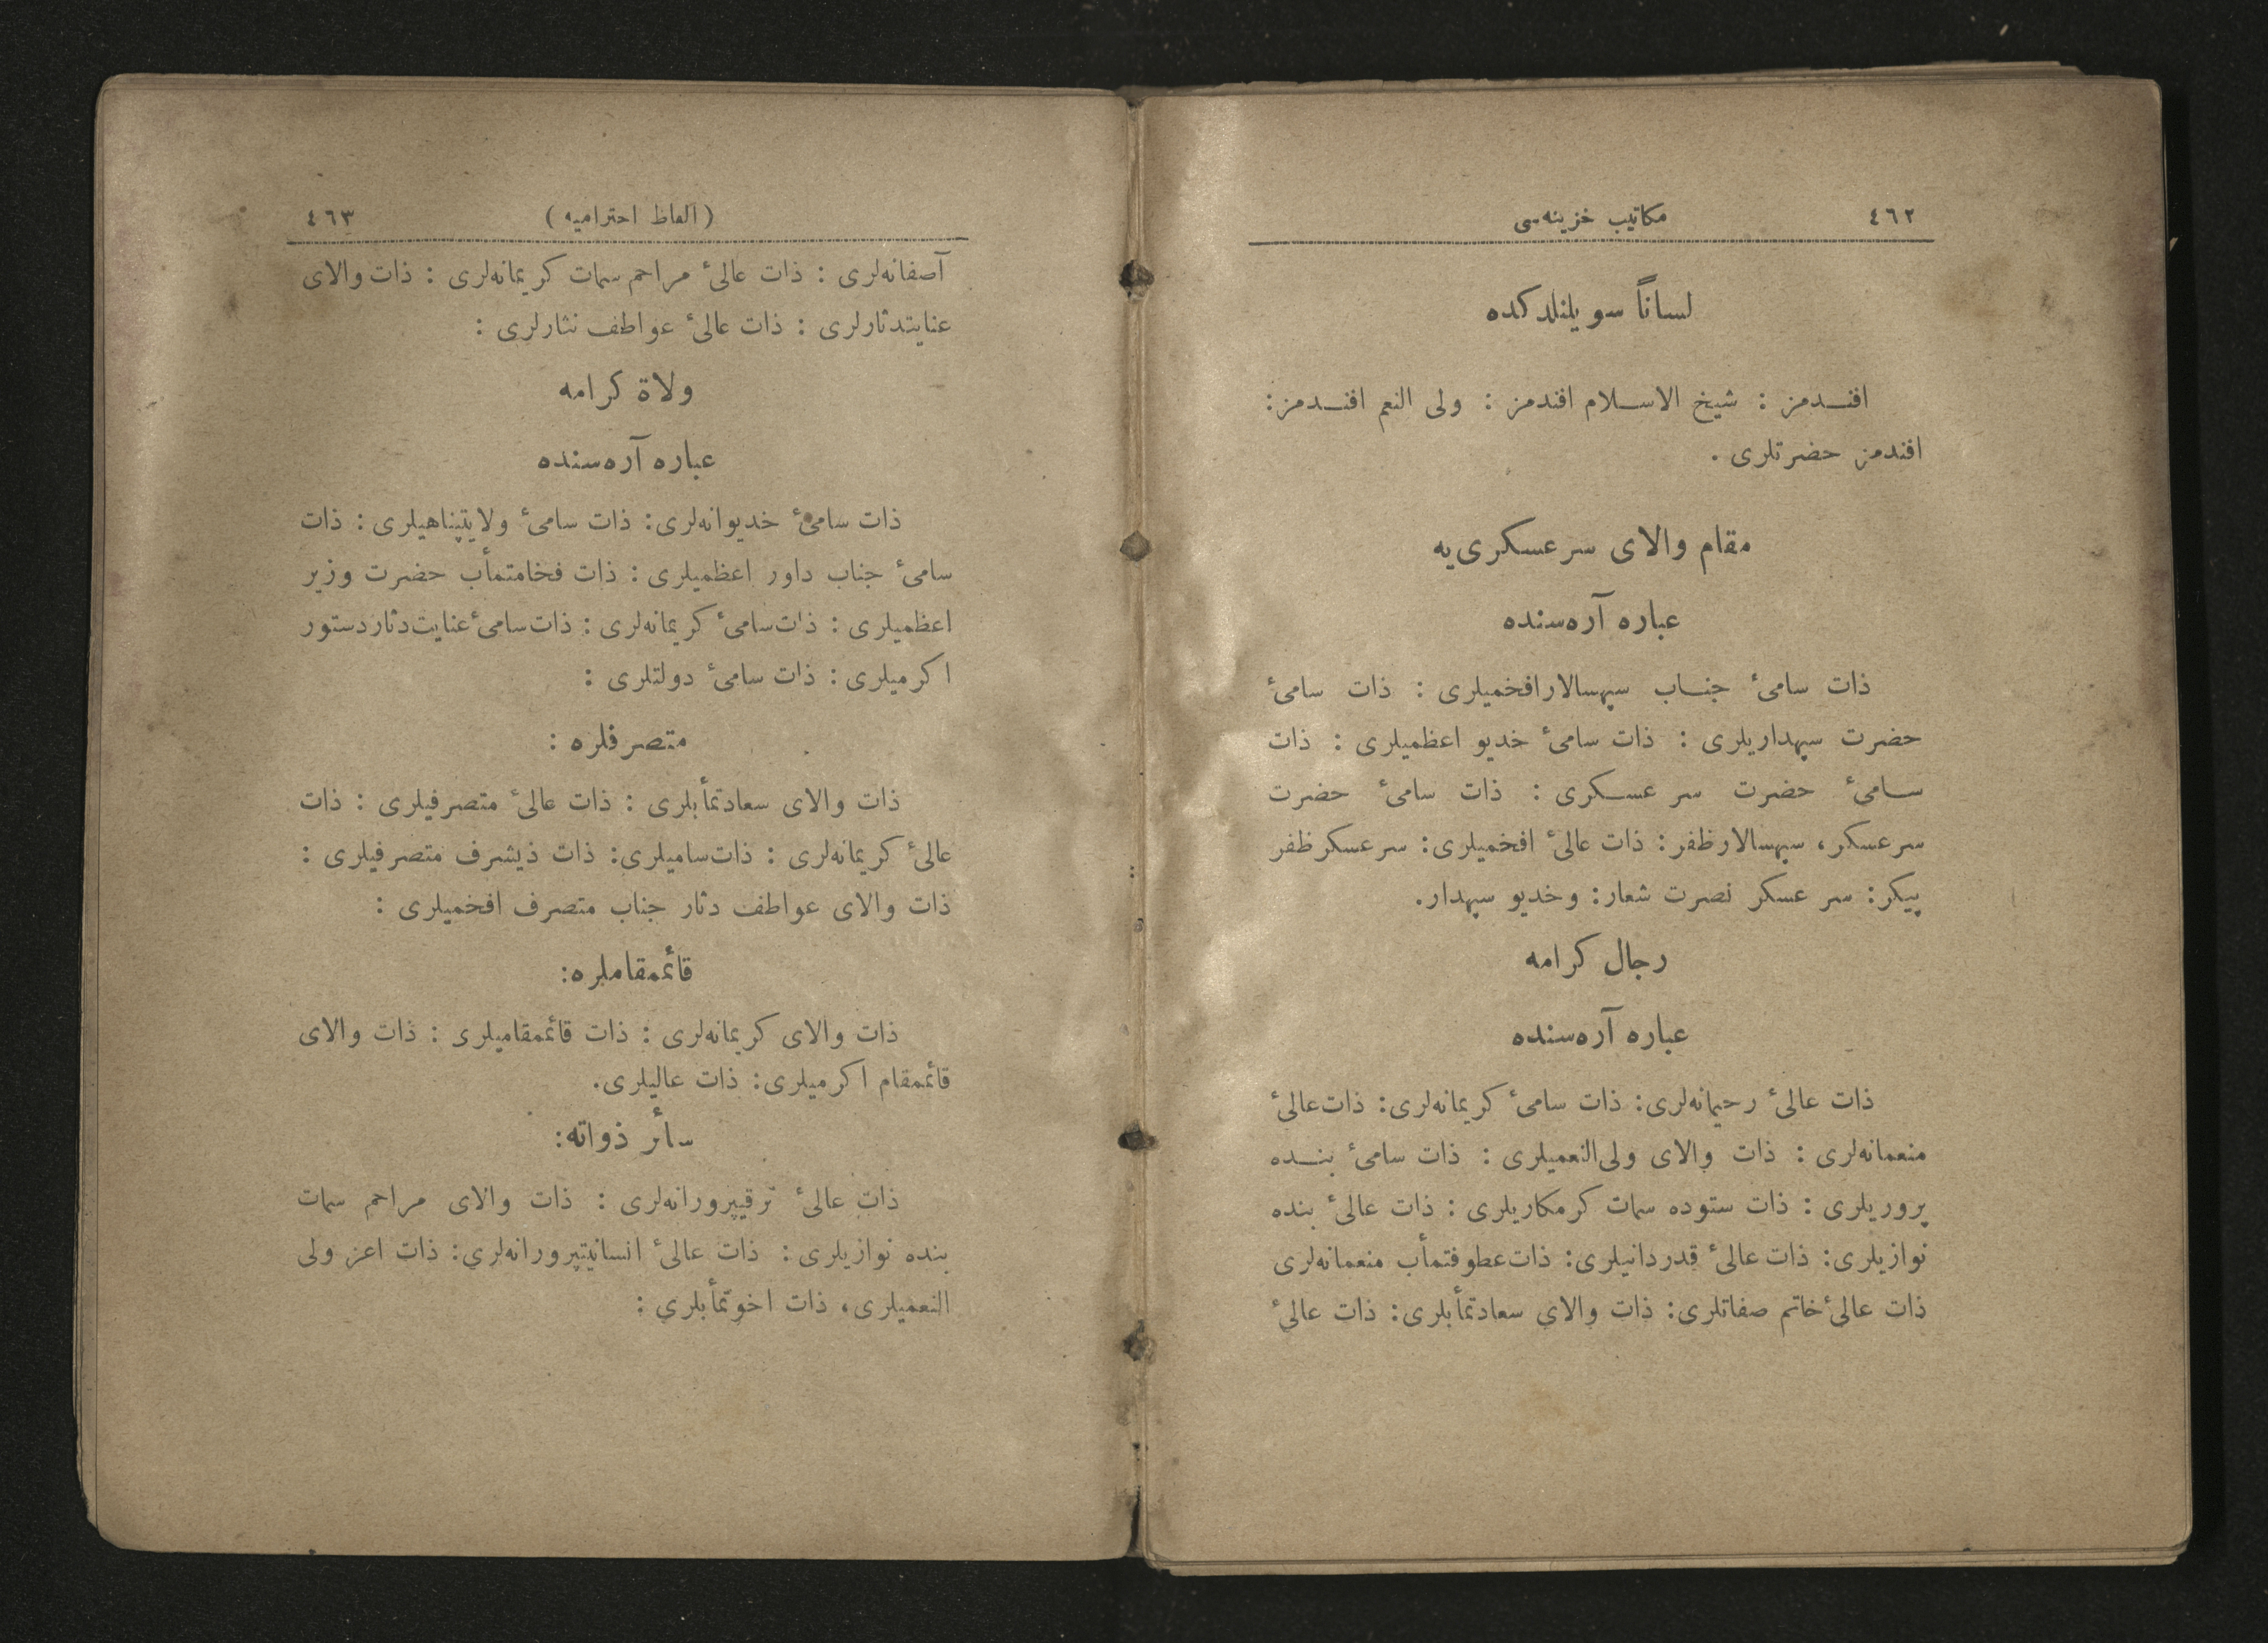 ٤٦٢ مكاتيب خزينه‌سى
لساناً سويلنلدكده
افنـدمز : شيخ الاسـلام افندمز : ولى النعم افنـدمز :
افندمز حضرتلرى .
مقام والاى سرعسكرى‌يه
عباره آره‌سنده
ذات سامىٔ جنـاب سپهسالارافخميلرى : ذات سامىٔ
حضرت سپهداريلرى : ذات سامىٔ خديو اعظميلرى : ذات
سـامىٔ حضرت سر عسـكرى : ذات سامىٔ حضرت
سرعسكر، سپهسالارظفر : ذات عالىٔ افخميلرى : سرعسكرظفر
پيكر : سر عسكر نصرت شعار : وخديو سپهدار.
رجال كرامه
عباره آره‌سنده
ذات عالىٔ رحيمانه‌لرى : ذات سامىٔ كريمانه‌لرى : ذات‌عالىٔ
منعمانه‌لرى : ذات والاى ولى‌النعميلرى : ذات سامىٔ بنـده
پروريلرى : ذات ستوده سمات كرمكاريلرى : ذات عالىٔ بنده
نوازيلرى : ذات عالىٔ قدردانيلرى : ذات‌عطوفتمأب منعمانه‌لرى
ذات عالىٔ‌خاتم صفاتلرى : ذات والاى سعادتمأبلرى : ذات عالىٔ
(الفاظ احتراميه) ٤٦٣
آصفانه‌لرى : ذات عالىٔ مراحم سمات كريمانه‌لرى : ذات والاى
عنايتدثارلرى : ذات عالىٔ عواطف نثارلرى :
ولاة كرامه
عباره آره‌سنده
ذات سامىٔ خديوانه‌لرى : ذات سامىٔ ولايتپناهيلرى : ذات
سامىٔ جناب داور اعظميلرى : ذات فخامتمأب حضرت وزير
اعظميلرى : ذات‌سامىٔ كريمانه‌لرى : ذات‌سامىٔ‌عنايت‌دثاردستور
اكرميلرى : ذات سامىٔ دولتلرى :
متصرفلره :
ذات والاى سعادتمأبلرى : ذات عالىٔ متصرفيلرى : ذات
عالىٔ كريمانه‌لرى : ذات‌ساميلرى : ذات ذيشرف متصرفيلرى :
ذات والاى عواطف دثار جناب متصرف افخميلرى :
قائممقاملره :
ذات والاى كريمانه‌لرى : ذات قائممقاميلرى : ذات والاى
قائممقام اكرميلرى : ذات عاليلرى.
سأئر ذواته :
ذات عالىٔ ترقيپرورانه‌لرى : ذات والاى مراحم سمات
بنده نوازيلرى : ذات عالىٔ انسانيتپرورانه‌لرى : ذات اعز ولى
النعميلرى، ذات اخوتمأبلرى :